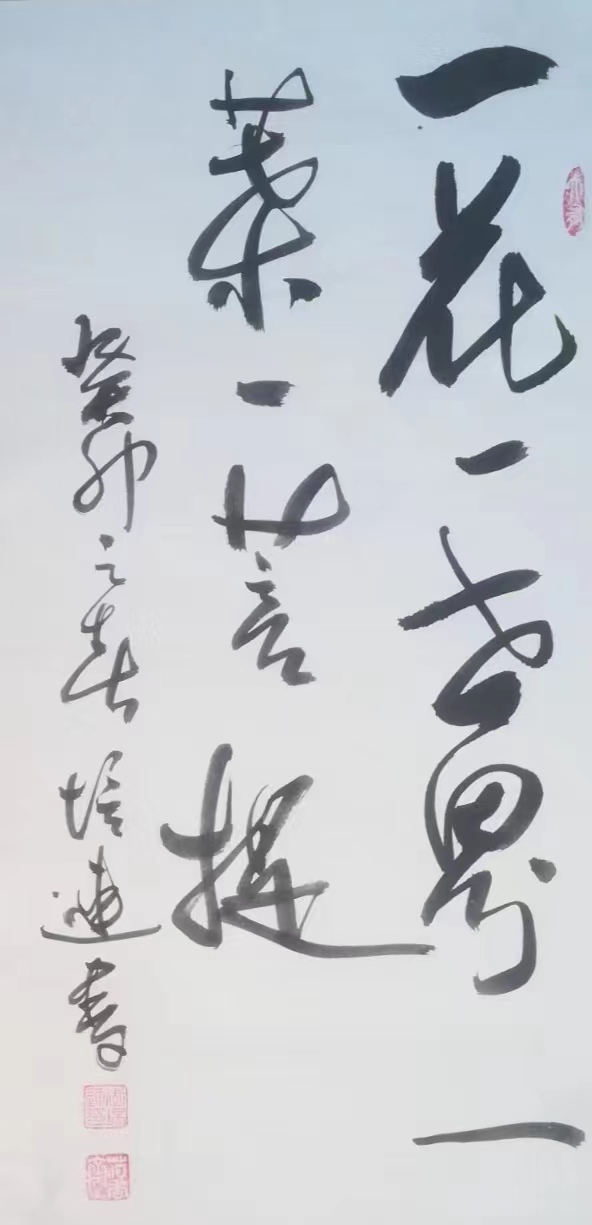 一花一世界一
葉一菩提
癸卯之春培連書